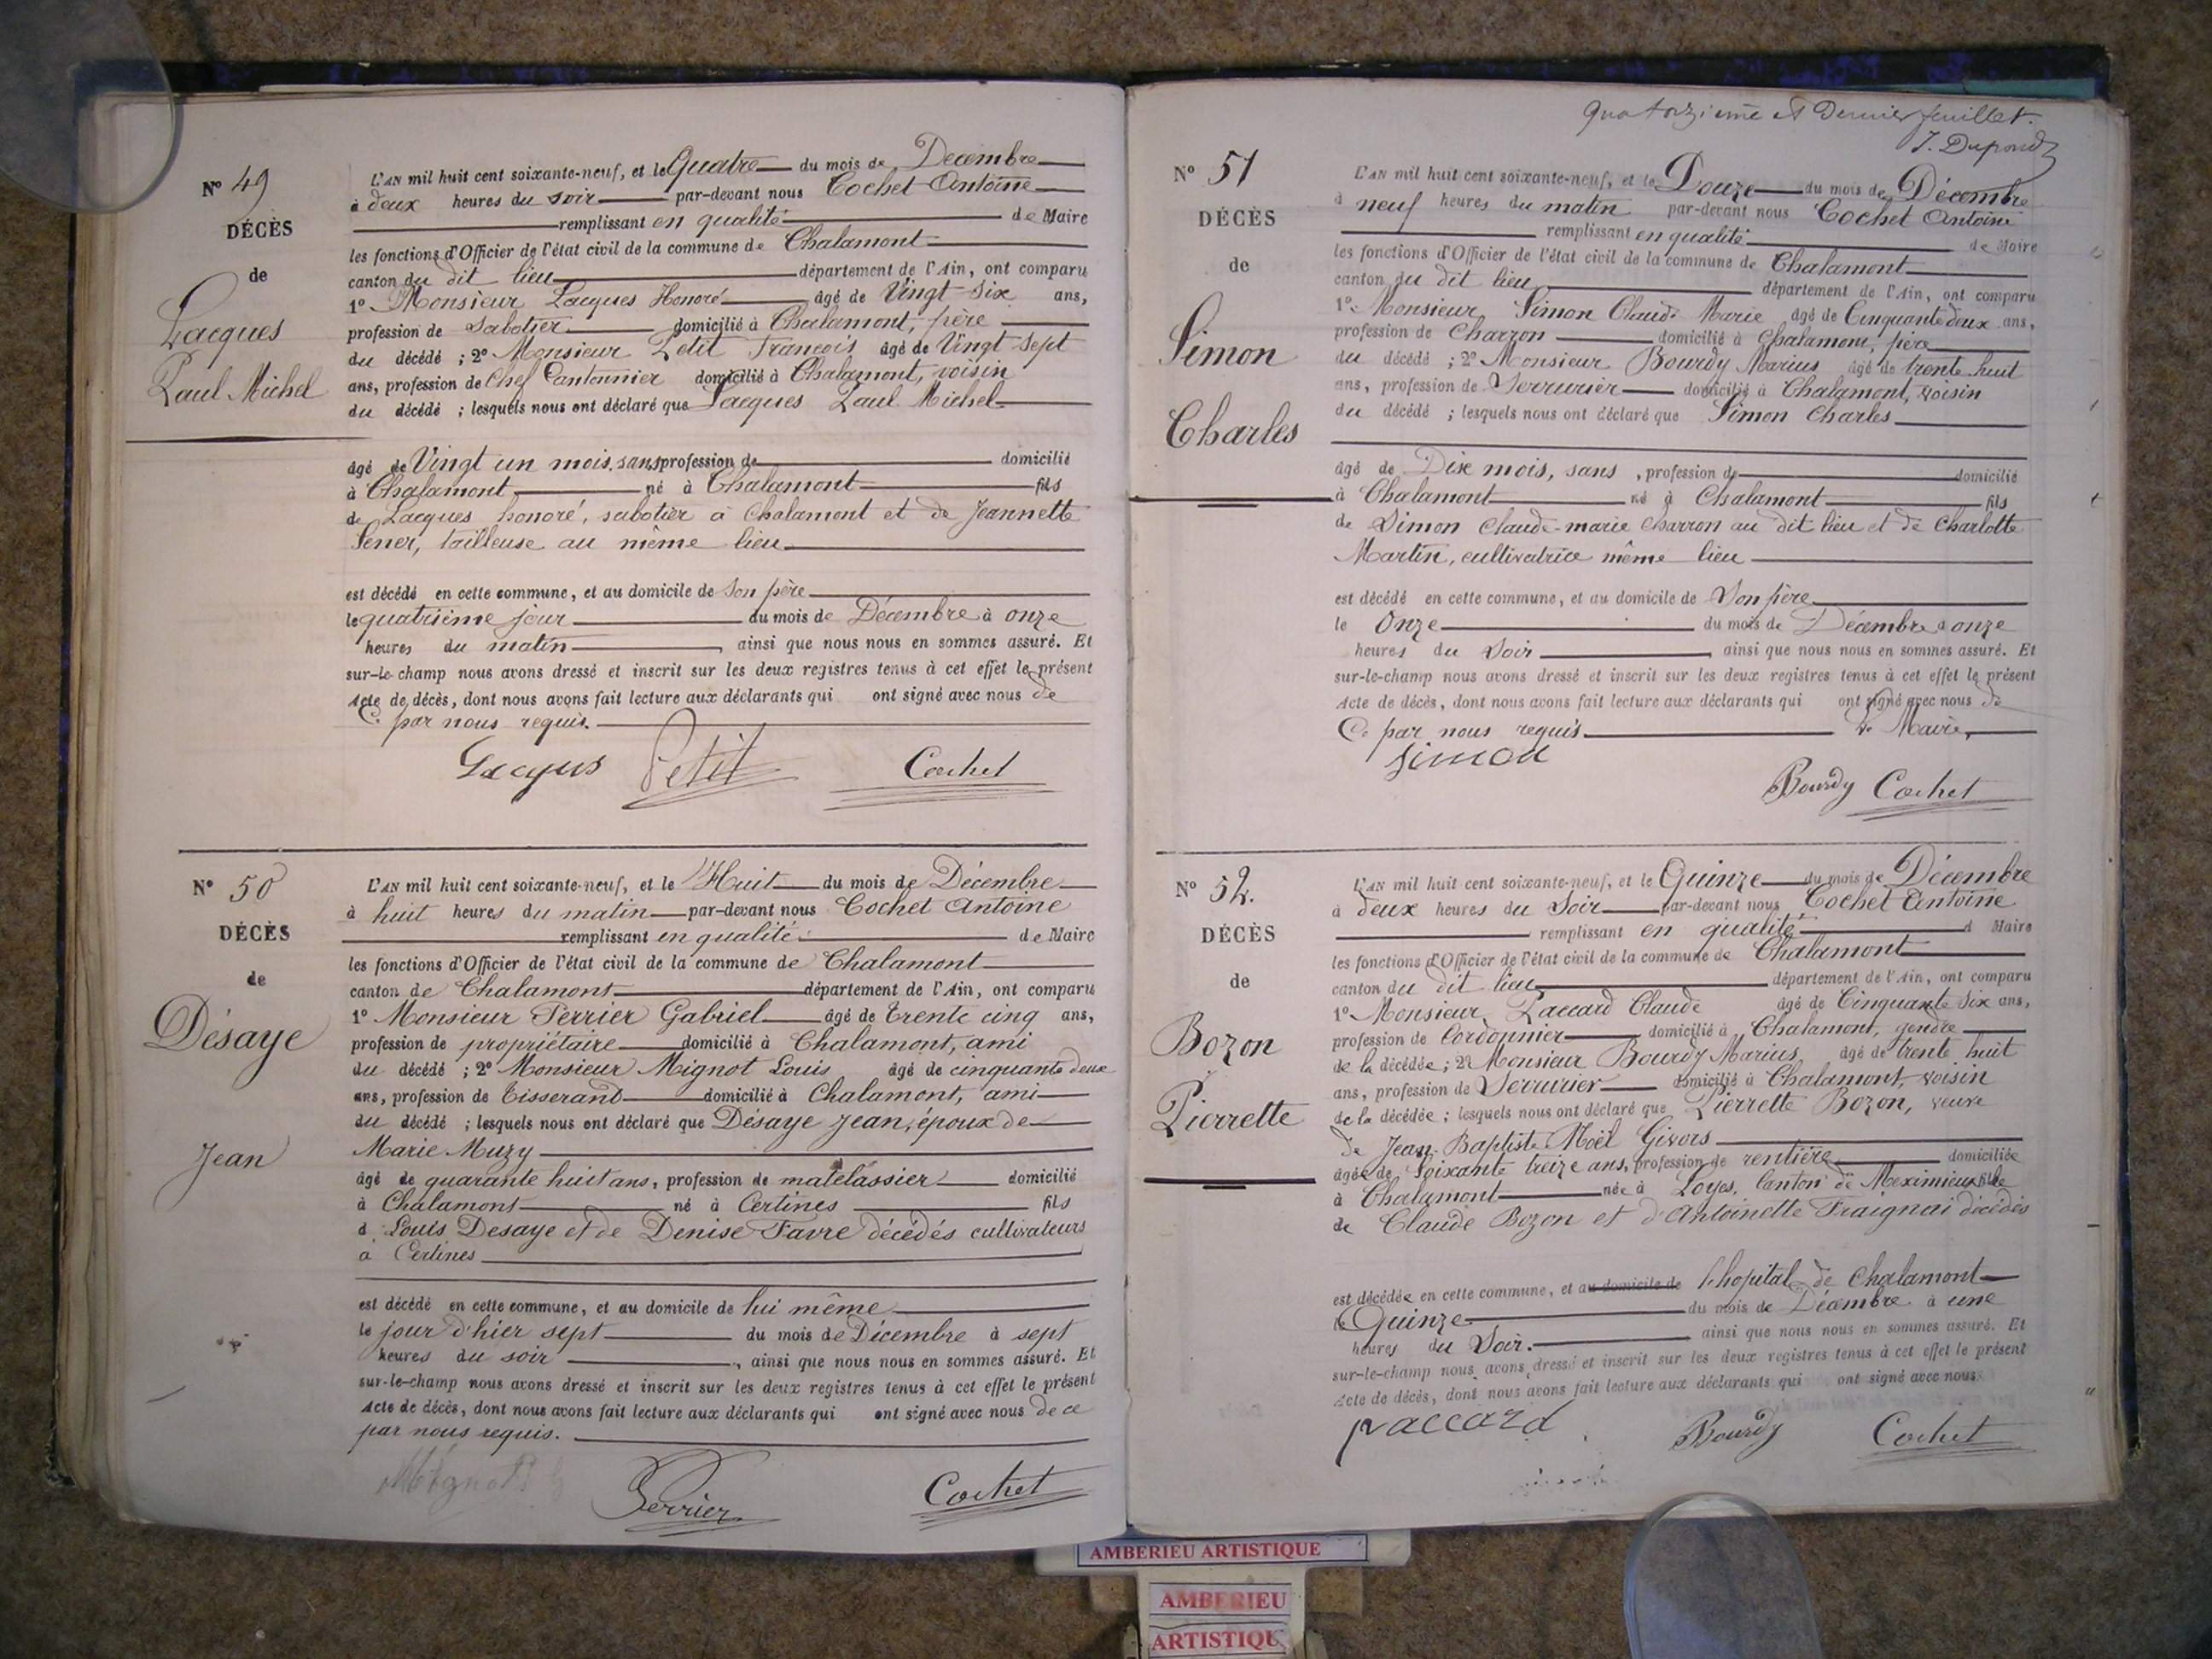 Nº 49
DÉCÈS
de
Lacques
Paul Michel
L'AN mil huit cent soixante-neuf, et le Quatre du mois de Decembre
à deux heures du soir par-devant nous Cochet Antoine
remplissant en qualité de Maire
les fonctions d'Officier de l'état civil de la commune de Chalamont
canton du dit lieu département de l'Ain, ont comparu
1º Monsieur Lacques Honoré âgé de Vingt Six ans,
profession de Sabotier domicilié à Chalamont, père
du décédé ; 2º Monsieur Petit François âgé de Vingt Sept
ans, profession de Chef Cantonnier domicilié à Chalamont, voisin
du décédé ; lesquels nous ont déclaré que Lacques Paul Michel
âgé de Vingt un mois, sans profession de domicilié
à Chalamont né à Chalamont fils
de Lacques honoré, sabotier à Chalamont et de Jeannette
Sener, tailleuse au même lieu
est décédé en cette commune, et au domicile de Son père
le quatrième jour du mois de Décembre à onze
heures du matin, ainsi que nous nous en sommes assuré. Et
sur-le-champ nous avons dressé et inscrit sur les deux registres tenus à cet effet le présent
Acte de décès, dont nous avons fait lecture aux déclarants qui ont signé avec nous de
Ce par nous requis.
Lacques Petit Cochet
Nº 50
DÉCÈS
de
Désaye
Jean
L'AN mil huit cent soixante-neuf, et le Huit du mois de Décembre
à huit heures du matin par-devant nous Cochet Antoine
remplissant en qualité de Maire
les fonctions d'Officier de l'état civil de la commune de Chalamont
canton de Chalamont département de l'Ain, ont comparu
1º Monsieur Perrier Gabriel âgé de Trente cinq ans,
profession de propriétaire domicilié à Chalamont, ami
du décédé ; 2º Monsieur Mignot Louis âgé de cinquante deux
ans, profession de Tisserand domicilié à Chalamont, ami
du décédé ; lesquels nous ont déclaré que Désaye Jean, époux de
Marie Muzy
âgé de quarante huit ans, profession de matelassier domicilié
à Chalamont né à Certines fils
d Louis Desaye et de Denise Favre décédés cultivateurs
a Certines
est décédé en cette commune, et au domicile de lui même
le jour d'hier sept du mois de Décembre à sept
heures du soir, ainsi que nous nous en sommes assuré. Et
sur-le-champ nous avons dressé et inscrit sur les deux registres tenus à cet effet le présent
Acte de décès, dont nous avons fait lecture aux déclarants qui ont signé avec nous de ce
par nous requis.
Mignot Perrier Cochet
Quatorzième et Dernier feuillet.
J. Dupond
Nº 51
DÉCÈS
de
Simon
Charles
L'AN mil huit cent soixante-neuf, et le Douze du mois de Décembre
à neuf heures du matin par-devant nous Cochet Antoine
remplissant en qualité de Maire
les fonctions d'Officier de l'état civil de la commune de Chalamont
canton du dit lieu département de l'Ain, ont comparu
1º Monsieur Simon Claude Marie âgé de Cinquante deux ans,
profession de Charron domicilié à Chalamont, père
du décédé ; 2º Monsieur Bourdy Marius âgé de trente huit
ans, profession de Serrurier domicilié à Chalamont, voisin
du décédé ; lesquels nous ont déclaré que Simon Charles
âgé de Dix mois, sans, profession de domicilié
à Chalamont né à Chalamont fils
de Simon Claude-marie Charron au dit lieu et de Charlotte
Martin, cultivatrice même lieu
est décédé en cette commune, et au domicile de Son père
le Onze du mois de Décembre à onze
heures du Soir, ainsi que nous nous en sommes assuré. Et
sur-le-champ nous avons dressé et inscrit sur les deux registres tenus à cet effet le présent
Acte de décès, dont nous avons fait lecture aux déclarants qui ont signé avec nous de
Ce par nous requis Le Maire,
Simon
Bourdy Cochet
Nº 52.
DÉCÈS
de
Bozon
Pierrette
L'AN mil huit cent soixante-neuf, et le Quinze du mois de Décembre
à deux heures du Soir par-devant nous Cochet Antoine
remplissant en qualité d Maire
les fonctions d'Officier de l'état civil de la commune de Chalamont
canton du dit lieu département de l'Ain, ont comparu
1º Monsieur Paccard Claude âgé de Cinquante Six ans,
profession de Cordonnier domicilié à Chalamont, gendre
de la décédée ; 2º Monsieur Bourdy Marius, âgé de trente huit
ans, profession de Serrurier domicilié à Chalamont, voisin
de la décédée ; lesquels nous ont déclaré que Pierrette Bozon, veuve
de Jean-Baptiste Noël Givors
âgée de Soixante treize ans, profession de rentière domiciliée
à Chalamont née à Loyes, Canton de Meximieux fille
de Claude Bozon et d'Antoinette Fraignai décédés
est décédée en cette commune, et au domicile de l'hopital de Chalamont
le Quinze du mois de Décembre à une
heures du Soir. ainsi que nous nous en sommes assuré. Et
sur-le-champ nous avons dressé et inscrit sur les deux registres tenus à cet effet le présent
Acte de décès, dont nous avons fait lecture aux déclarants qui ont signé avec nous
paccard Bourdy Cochet
AMBERIEU ARTISTIQUE
AMBERIEU
ARTISTIQU